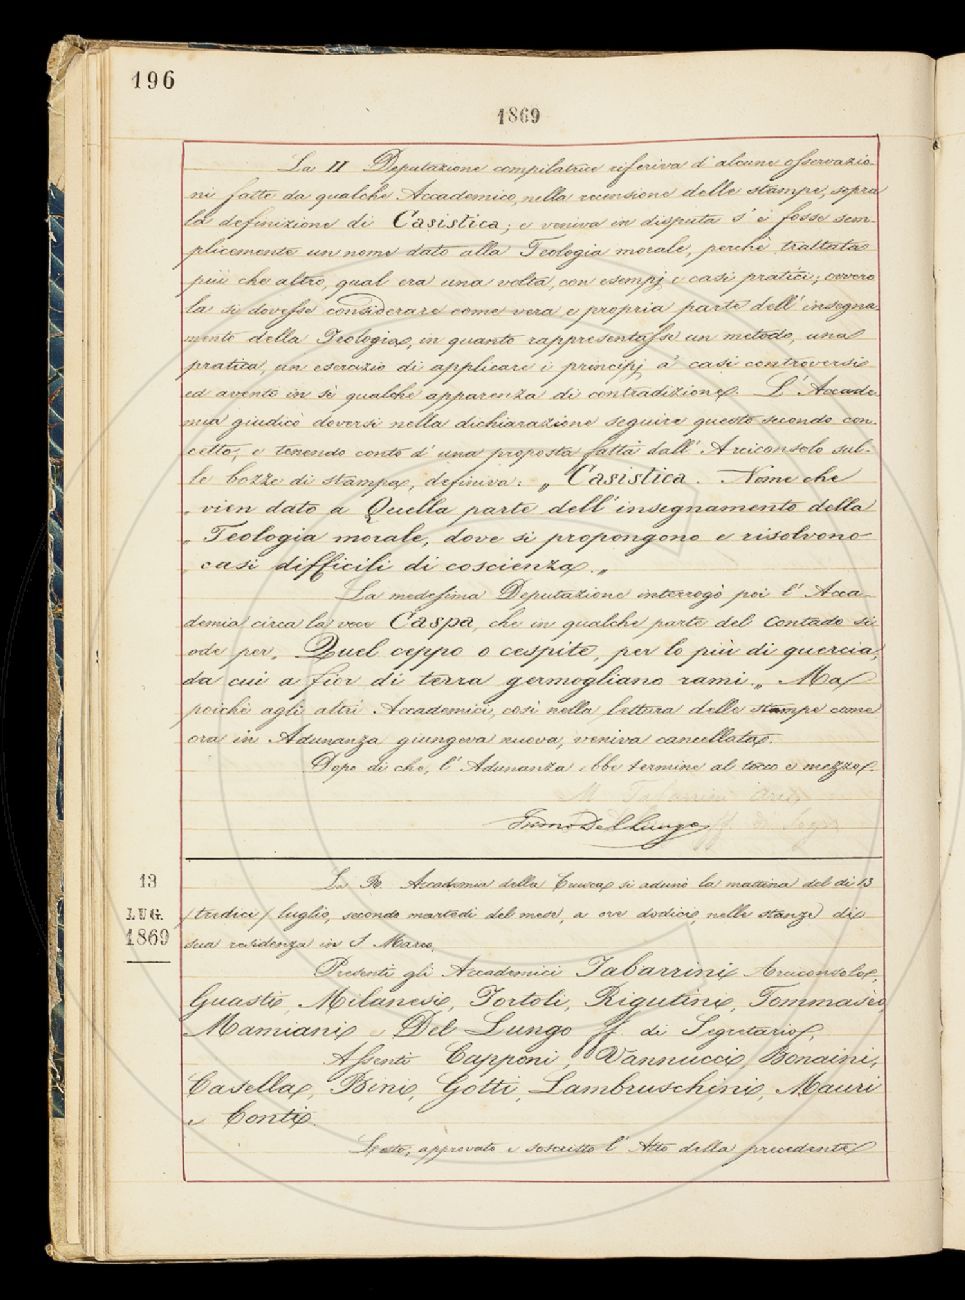 196
1869
La II Deputazione compilatrice riferiva d'alcune osservazio-
ni fatte da qualche Accademico, nella recensione delle stampe, sopra
la definizione di Casistica; e veniva in disputa s'e' fosse sem-
plicemente un nome dato alla Teologia morale, perchè trattata
più che altro, qual era una volta, con esempj e casi pratici; ovvero
la si dovesse considerare come vera e propria parte dell'insegna-
mento della Teologia, in quanto rappresentasse un metodo, una
pratica, un esercizio di applicare i principj a' casi controversi
ed avente in sè qualche apparenza di contradizione. L'Accade-
mia giudicò doversi nella dichiarazione seguire questo secondo con-
cetto; e tenendo conto d'una proposta fatta dall'Arciconsolo sul-
le bozze di stampa, definiva: „ Casistica. Nome che
„ vien dato a Quella parte dell'insegnamento della
„ Teologia morale, dove si propongono e risolvono
„ casi difficili di coscienza. „
La medesima Deputazione interrogò poi l'Acca-
demia circa la voce Caspa, che in qualche parte del Contado si
ode per „ Quel ceppo o cespite, per lo più di quercia,
da cui a fior di terra germogliano rami. „ Ma
poichè agli altri Accademici, così nella lettura delle stampe come
ora in Adunanza giungeva nuova, veniva cancellata.
Dopo di che, l'Adunanza ebbe termine al tocco e mezzo.
M Tabarrini Arcic.
Isidoro Del Lungo ff. di Segr.
13
LUG.
1869
La R. Accademia della Crusca si adunò la mattina del dì 13
/tredici/ luglio, secondo martedì del mese, a ore dodici, nelle stanze di
sua residenza in S Marco.
Presenti gli Accademici Tabarrini Arciconsolo,
Guasti, Milanesi, Tortoli, Rigutini, Tommaseo,
Mamiani e Del Lungo ff. di Segretario.
Assenti Capponi, Vannucci, Bonaini,
Casella, Bini, Gotti, Lambruschini, Mauri
e Conti.
Letto, approvato e soscritto l'Atto della precedente